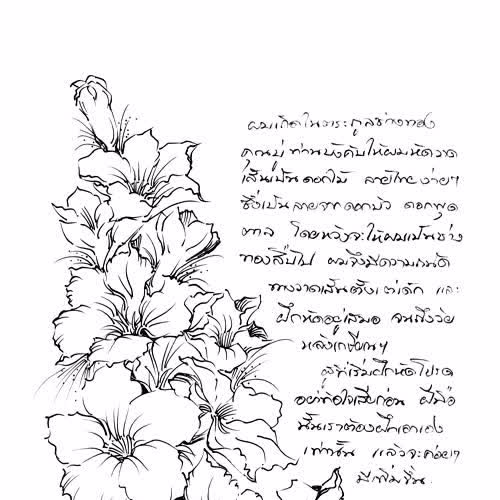 ผมเกิดในตระกูลช่างทอง
คุณปู่ ท่านบังคับให้ผมหัดวาด
เส้นเป็นดอกไม้ ลายไทยง่ายๆ
ซึ่งเป็นลายจากดอกบัว ดอกพุด
ตาล โดยหวังจะให้ผมเป็นช่าง
ทองสืบไป ผมจึงมีความถนัด
ทางวาดเส้นตั้งแต่เด็ก และ
ฝึกหัดอยู่เสมอ จนถึงวัย
หลังเกษียนฯ
ผู้ที่เริ่มฝึกหัดโปรด
อย่าท้อใจเสียก่อน ฝีมือ
นั้นเราต้องฝึกเอาเอง
เท่านั้น แล้วจะค่อยๆ
ดีเพิ่มขึ้น